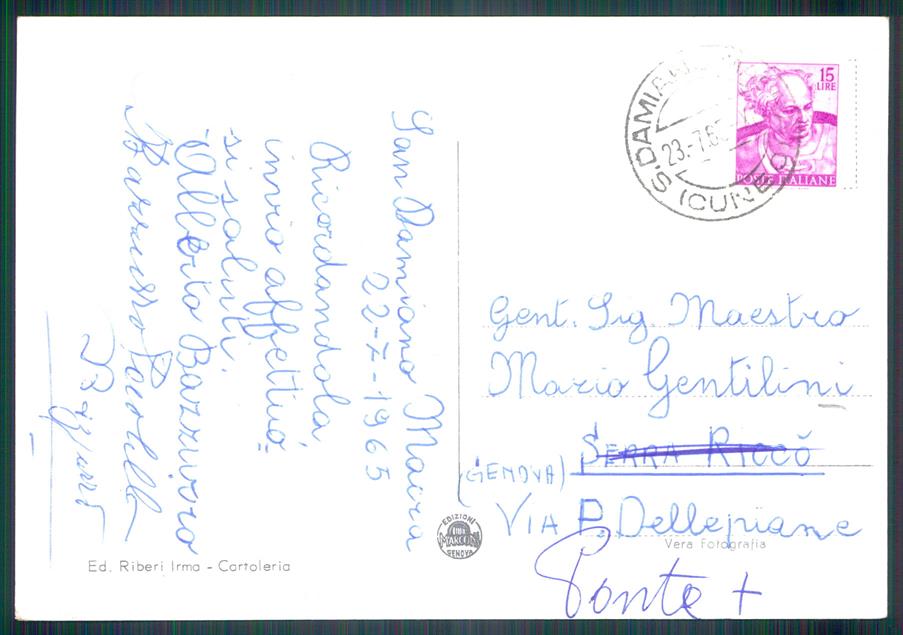 San Damiano Macra
22-7-1965
Ricordandola
invio affettuo-
si saluti.
Alberto Bazzurro
Ed. Riberi Irma - Cartoleria
15
LIRE
POSTE ITALIANE
S. DAMIANO
23.-7.65
(CUNEO)
Gent. Sig. Maestro
Mario Gentilini
SERRA RICCÒ
(GENOVA)
VIA P. Dellepiane
Vera Fotografia
Ponte +
EDIZIONI
GENOVA